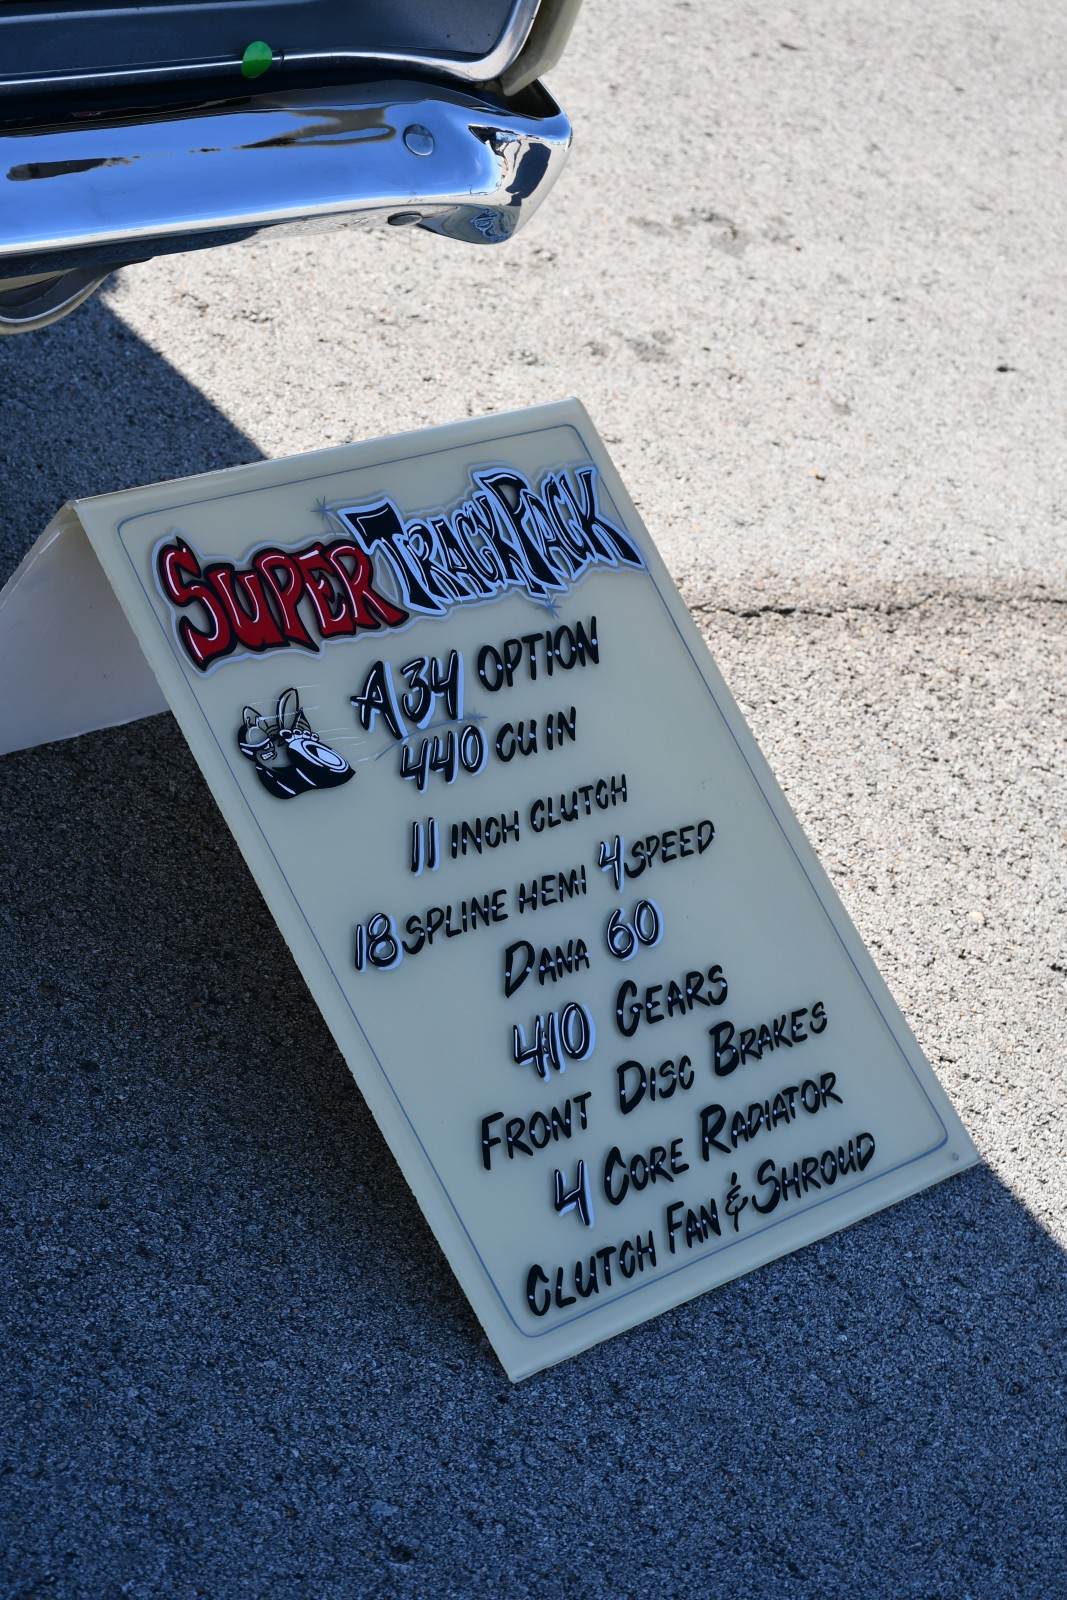 Super Track Pack
A34 Option
440 cu in
11 inch clutch
18 spline hemi 4 speed
Dana 60
410 Gears
Front Disc Brakes
4 Core Radiator
Clutch Fan & Shroud